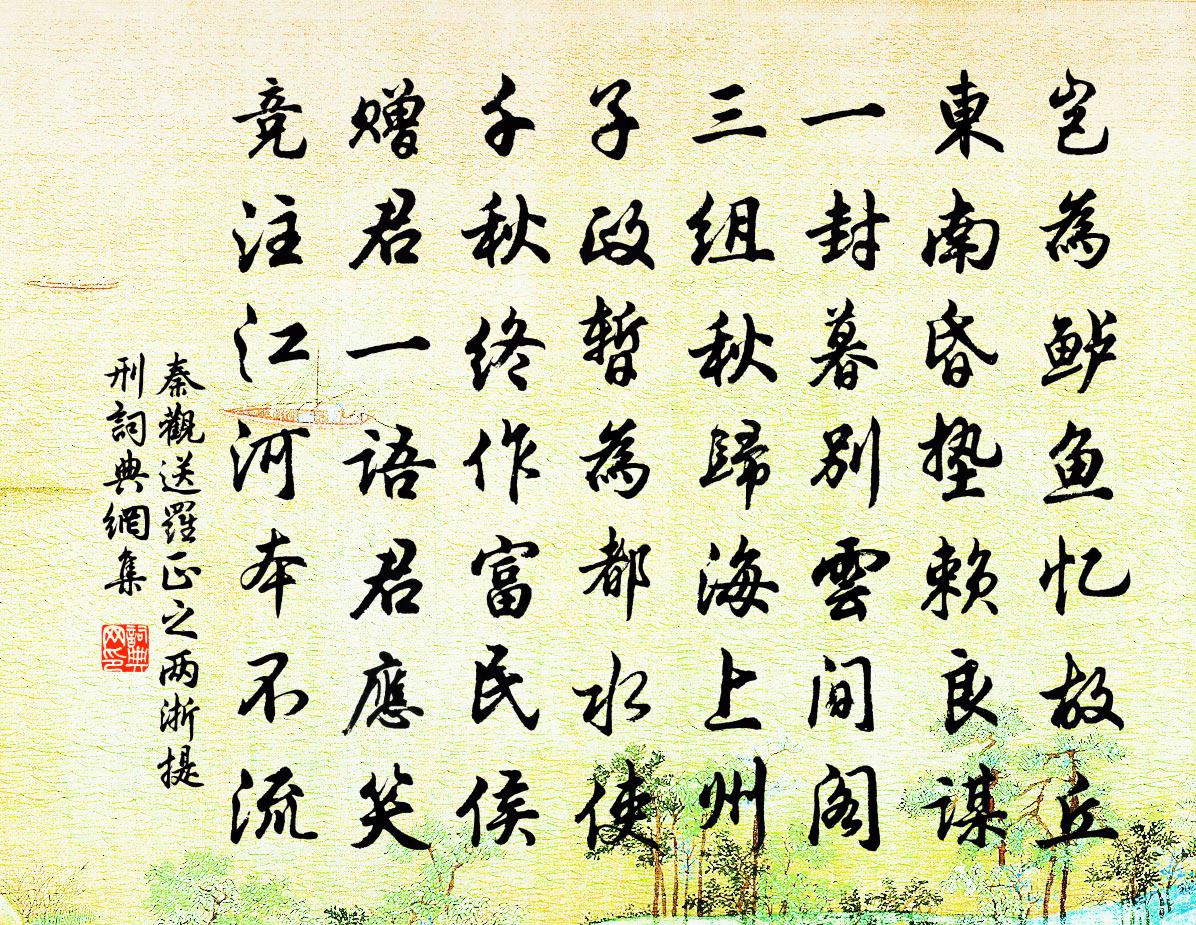 岂為鲈鱼忆故丘
東南昏垫赖良谋
一封暮别雲间阁
三组秋歸海上州
子政暂為都水使
千秋终作富民侯
赠君一语君應笑
竞注江河本不流
秦觀送羅正之两浙提
刑詞典網集
詞典
网印